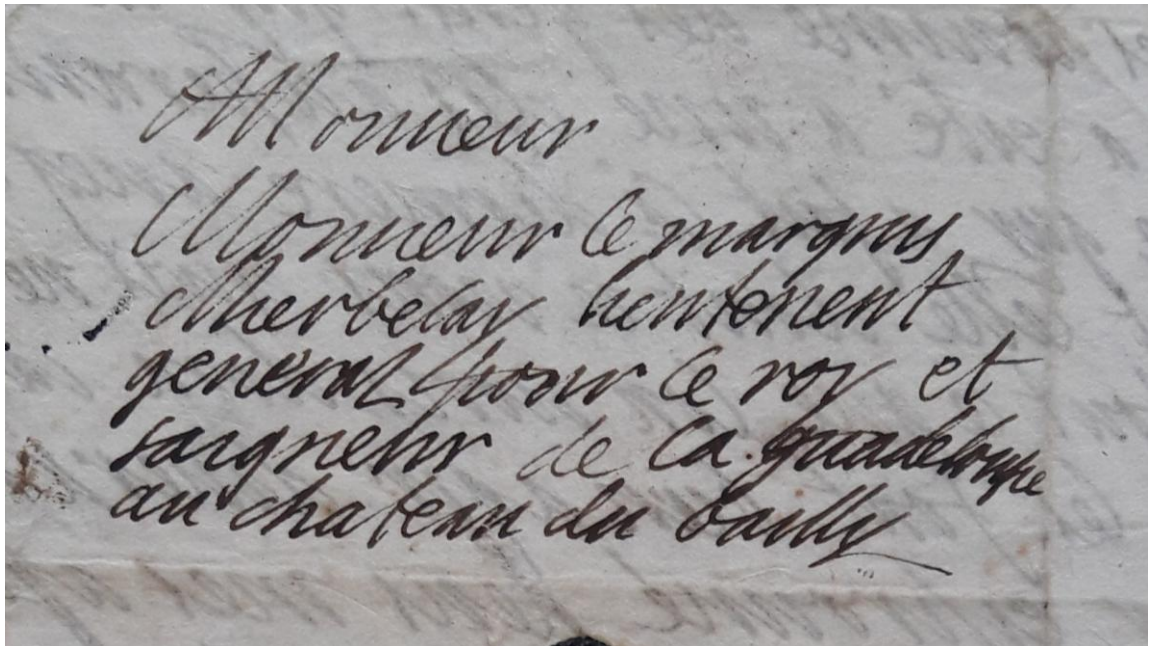 Monsieur
Monsieur le marquis
dherbelay lieutenent
general pour le roy et
saigneur de la guadeloupe
au chateau du bailly